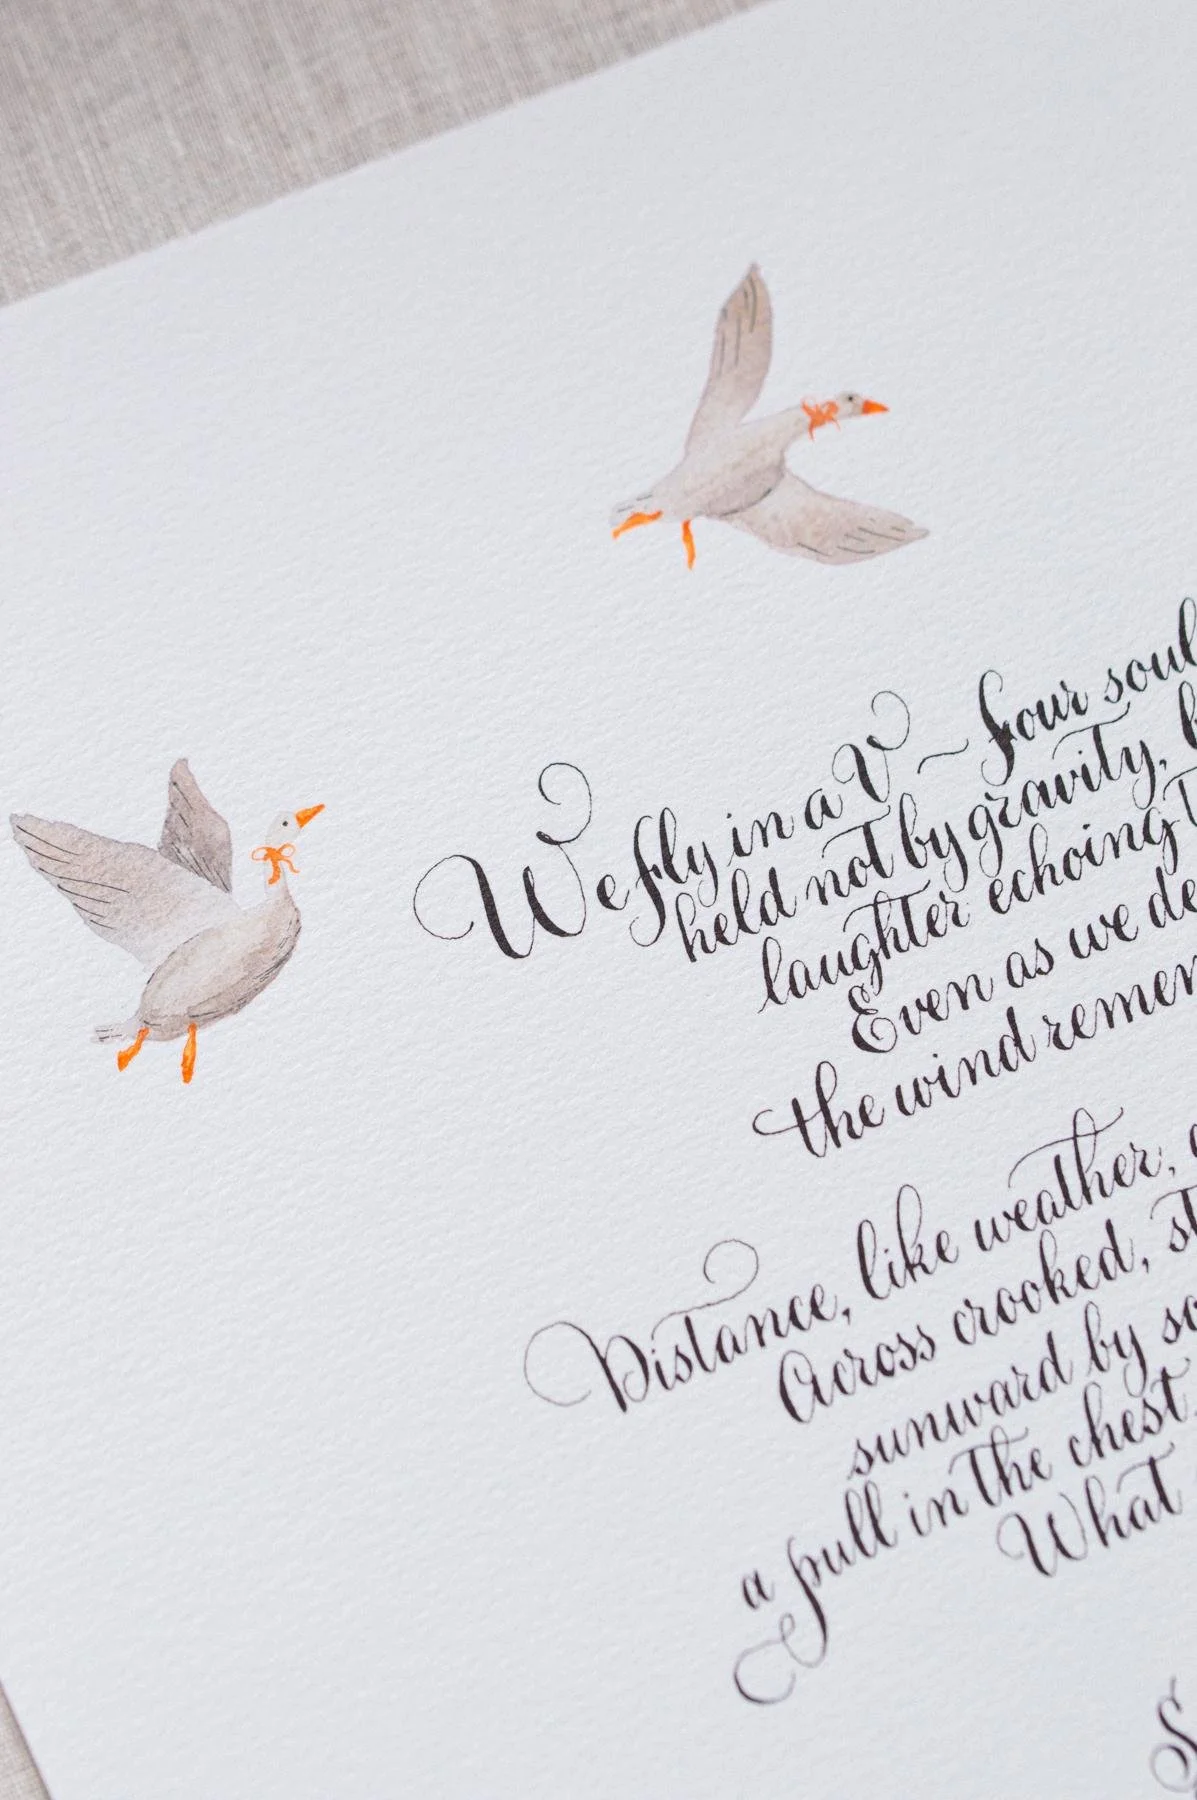 We fly in a V ~ four soul
held not by gravity,
laughter echoing
Even as we de
the wind remem
Distance, like weather,
Across crooked, st
sunward by so
a pull in the chest
What
S